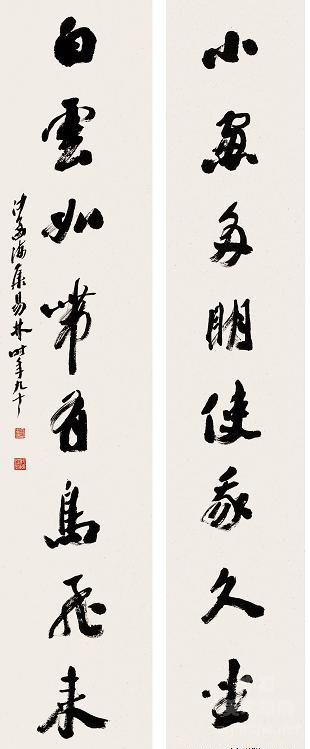 小窗多明使我久坐
白雲如帶有鳥飛来
沙孟海集易林時年九十